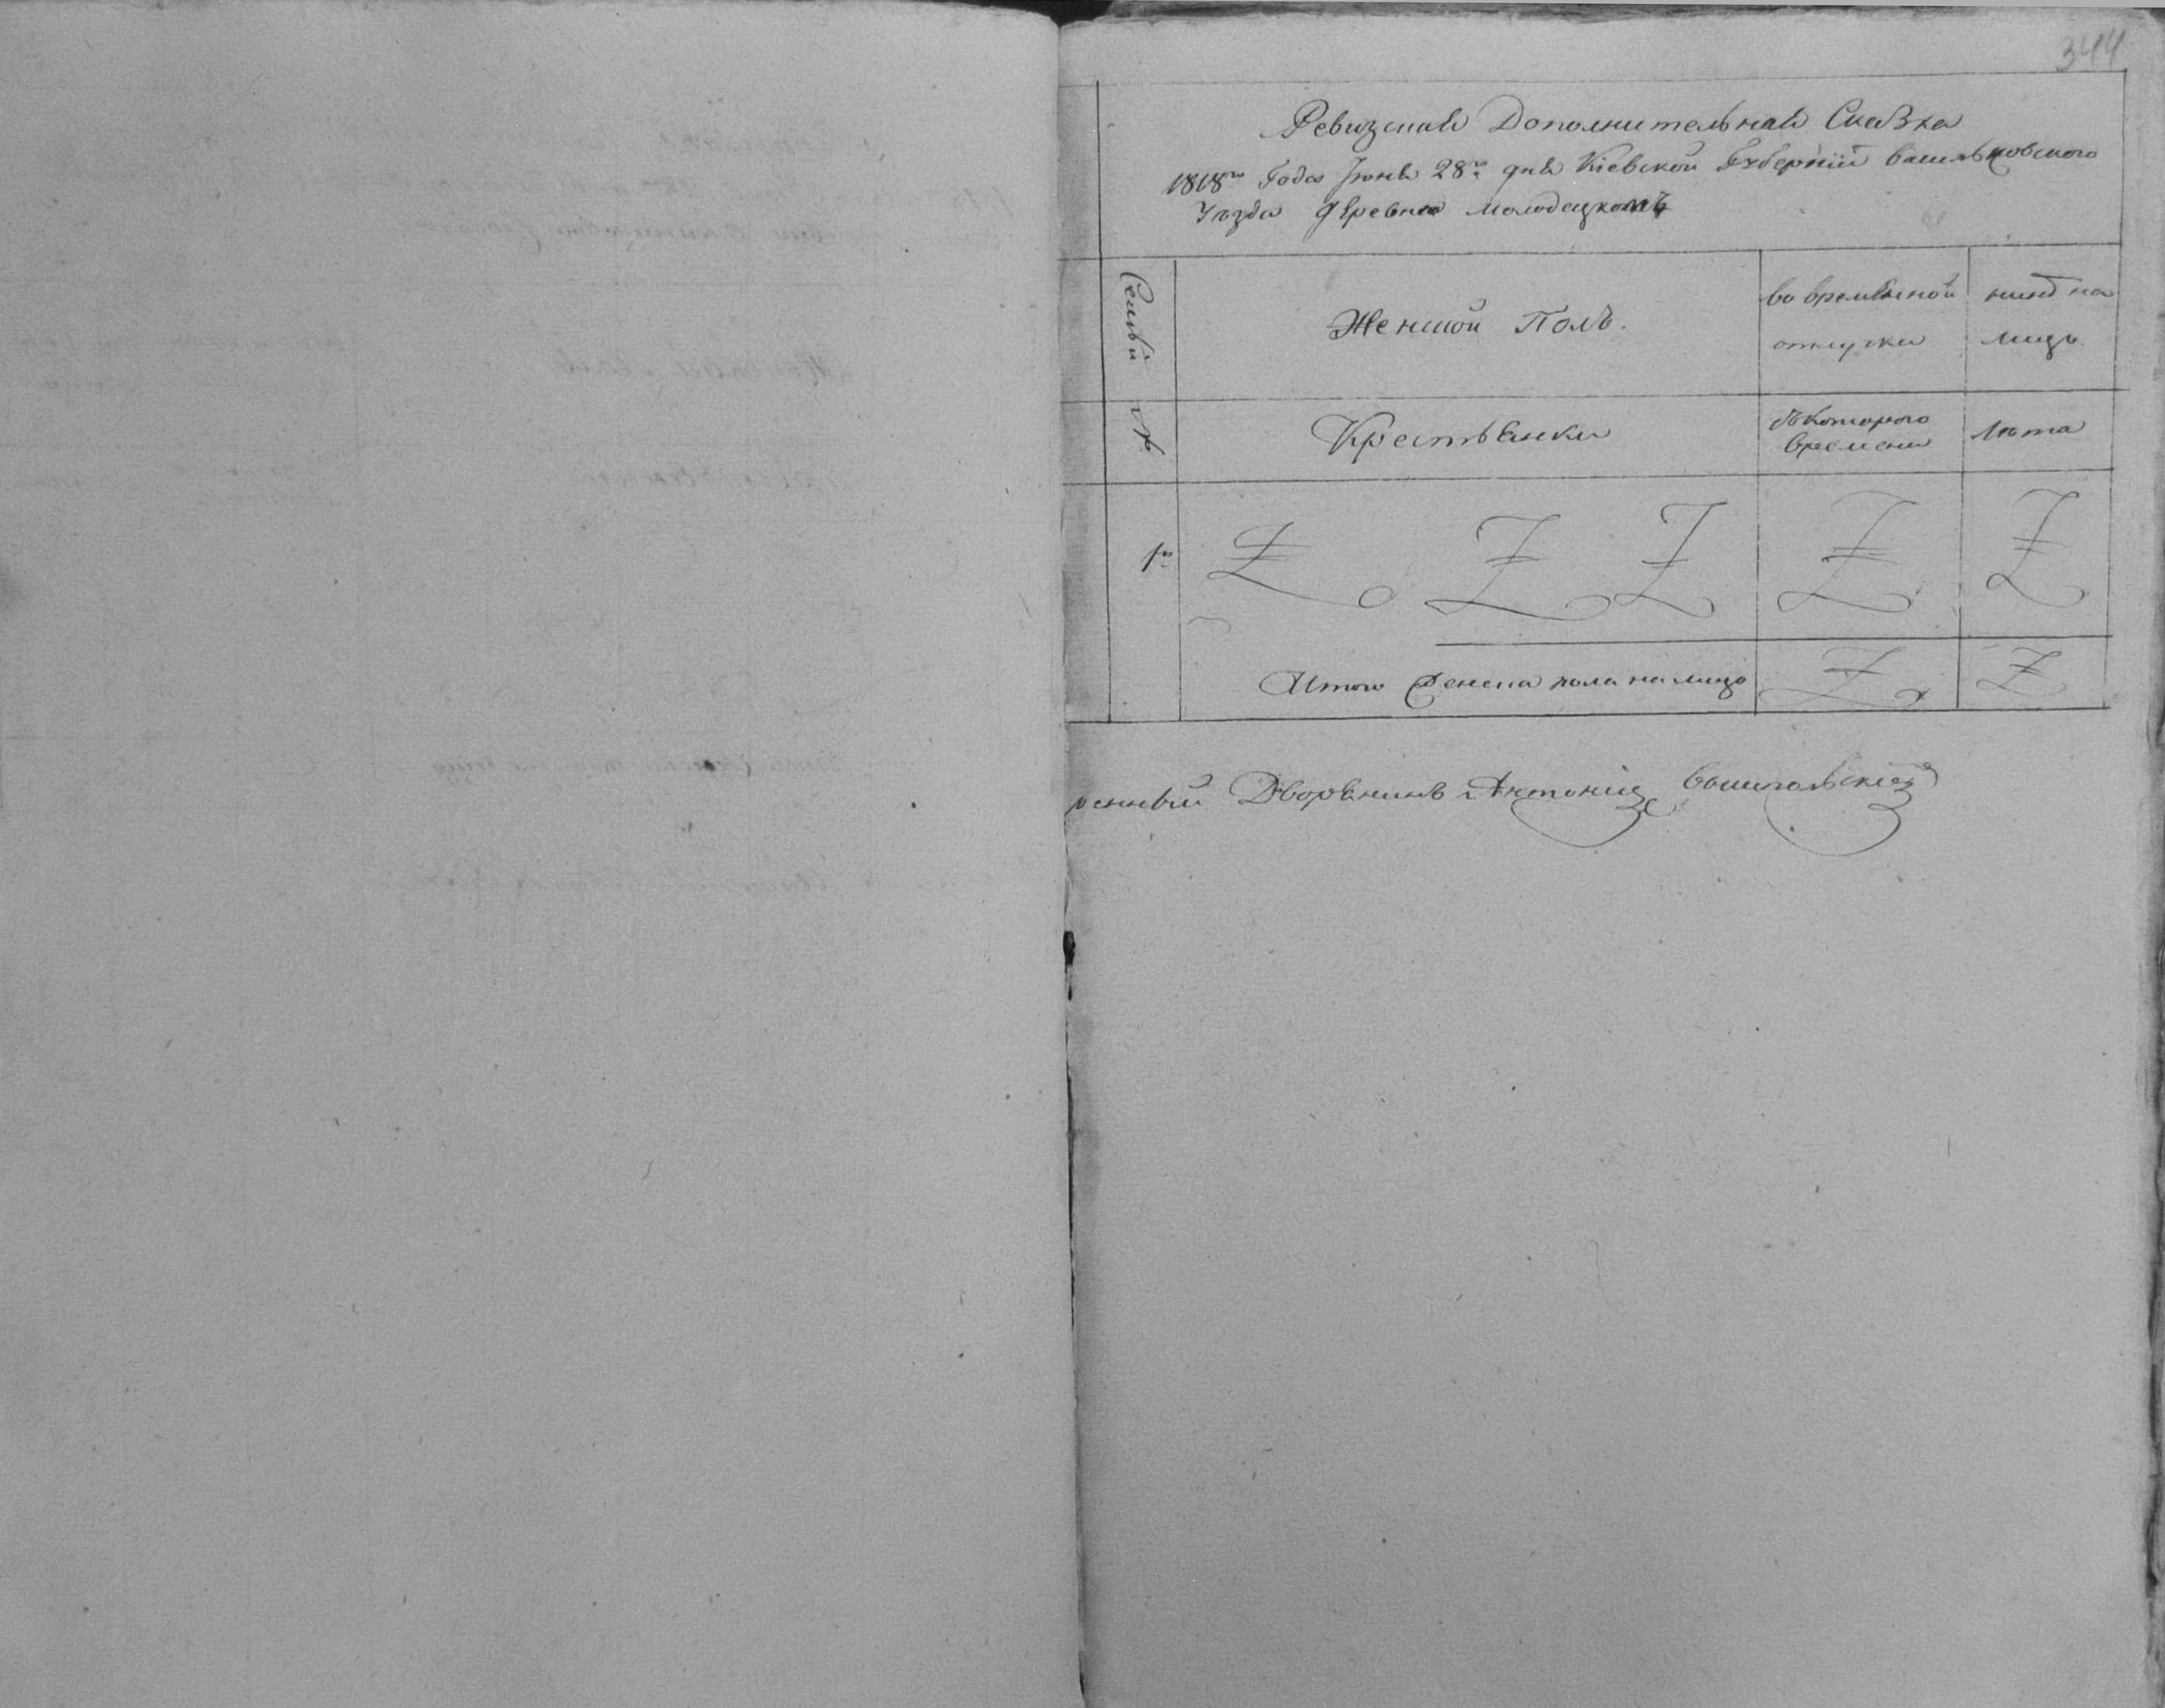 344
Ревизская Дополнительная Сказка
1818го Года Июня 28го дня Кіевской Губерніи васильковского
Уезда деревни молодецкой
Семьи
Женской Полъ.
во временной отлучки
нынѣ на лицо
№
Крестьянки
съ которого времени
лѣта
1я
Итого Женска пола на лицо
ренный Дворянинъ Антоній